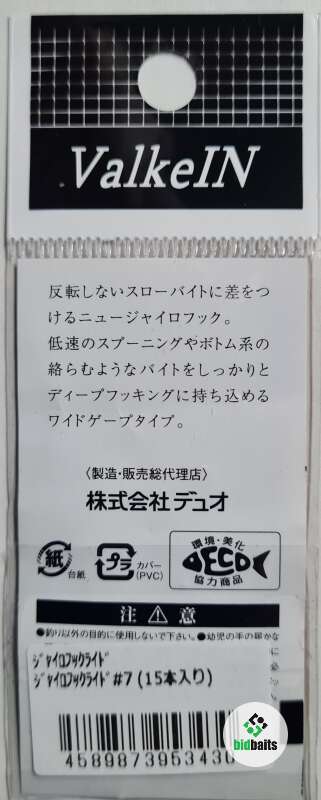 ValkeIN
反転しないスローバイトに差をつ
けるニュージャイロフック。
低速のスプーニングやボトム系の
絡らむようなバイトをしっかりと
ディープフッキングに持ち込める
ワイドゲープタイプ。
〈製造・販売総代理店〉
株式会社デュオ
紙 台紙
プラ カバー (PVC)
環境・美化
ECO
協力商品
注 意
●釣り以外の目的に使用しないで下さい。●幼児の手の届かな
ｼﾞｬｲﾛﾌｯｸﾗｲﾄﾞ
ｼﾞｬｲﾛﾌｯｸﾗｲﾄﾞ#7 (15本入り)
458987395343
bidbaits